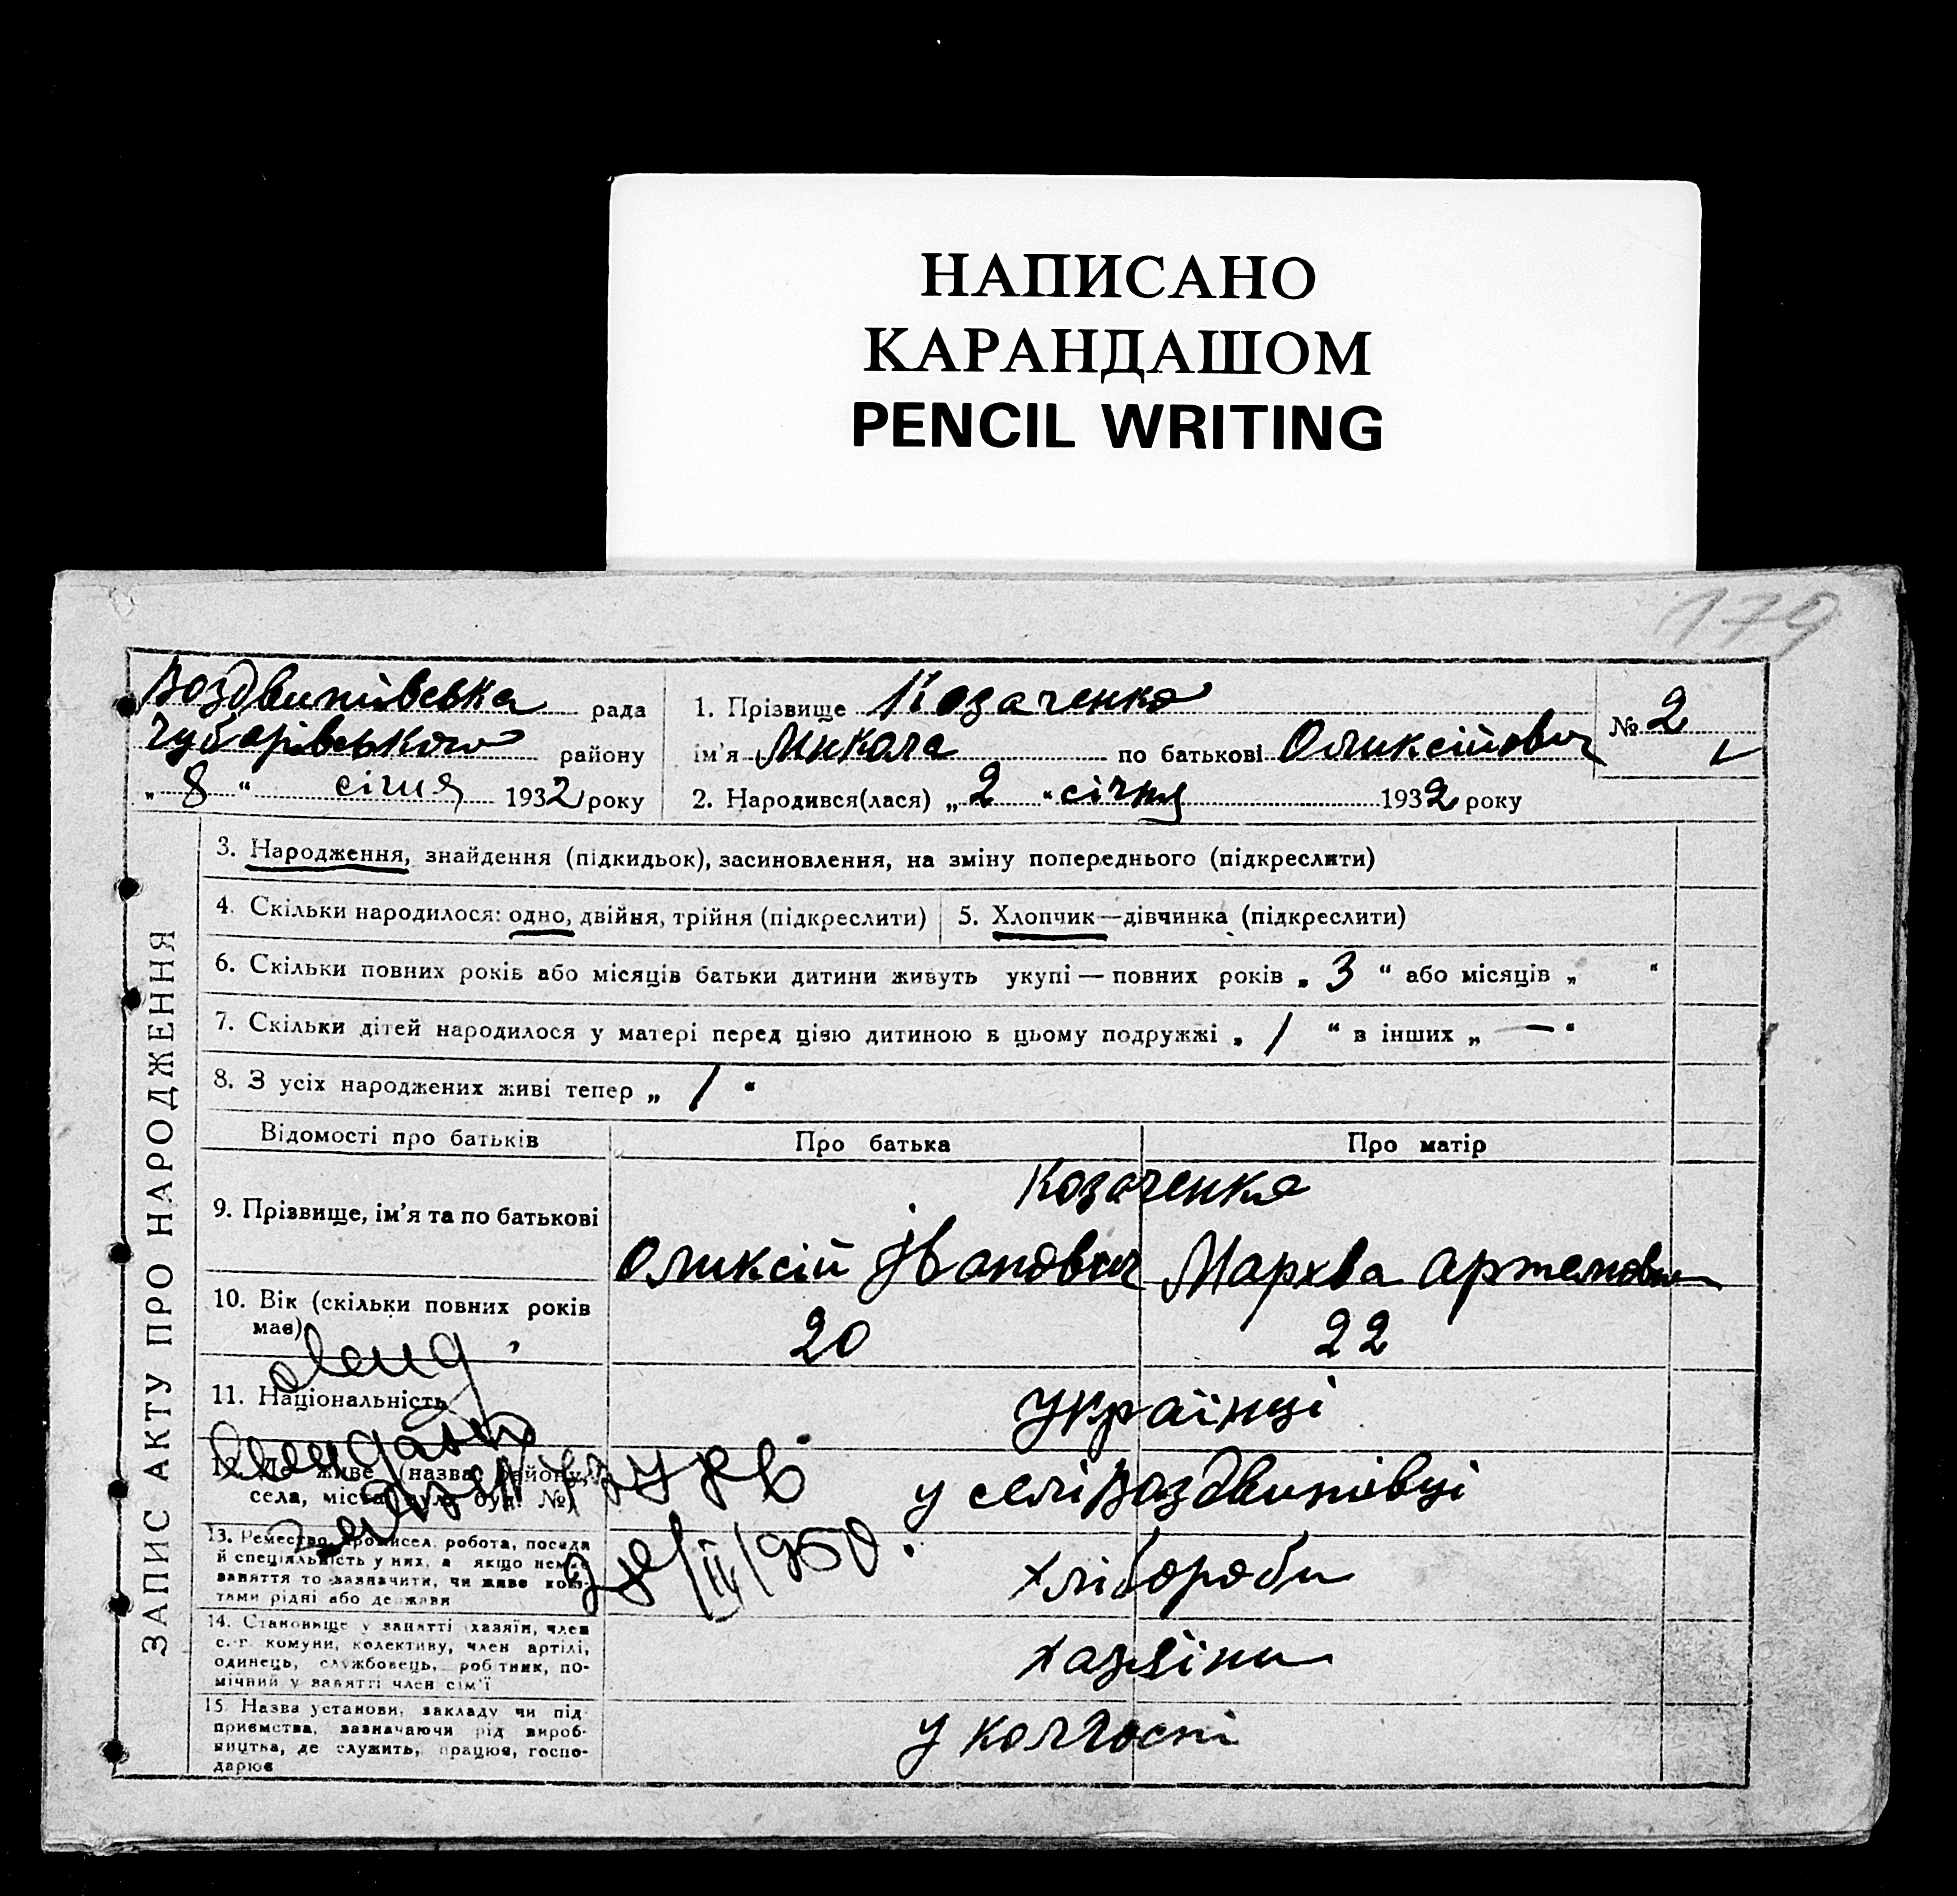 НАПИСАНО
КАРАНДАШОМ
PENCIL WRITING
179
Воздвиживська рада
Чубарівського району
„ 8 “ січня 1932 року
1. Прізвище Козаченко
ім'я Микола по батькові Оликсійович
2. Народився(лася) „ 2 “ січня 1932 року
№ 2
ЗАПИС АКТУ ПРО НАРОДЖЕННЯ
3. Народження, знайдення (підкидьок), засиновлення, на зміну попереднього (підкреслити)
4. Скільки народилося: одно, двійня, трійня (підкреслити)
5. Хлопчик—дівчинка (підкреслити)
6. Скільки повних років або місяців батьки дитини живуть укупі — повних років „ 3 “ або місяців „ “
7. Скільки дітей народилося у матері перед цією дитиною в цьому подружжі „ 1 “ в інших „ — “
8. З усіх народжених живі тепер „ 1 “
Відомості про батьків Про батька Про матір
9. Прізвище, ім'я та по батькові
Козаченко
Оликсій Іванович Мархва Артемовна
10. Вік (скільки повних років
має)
20 22
11. Національність
українці
12. Де живе (назва району,
села, міста, вул. буд. №)
у селі Воздвижівці
13. Ремество, промисел, робота, посада
й спеціяльність у них, а якщо немає
заняття то зазначити, чи живе кош-
тами рідні або держави
хлібороби
14. Становище у занятті (хазяїн, член
с.-г. комуни, колективу, член артілі,
одинець, службовець, робітник, по-
мічний у занятті член сім'ї
хазяїни
15. Назва установи, закладу чи під-
приємства, зазначаючи рід вироб-
ництва, де служить, працює, госпо-
дарює
у колгоспі
/III/1950.